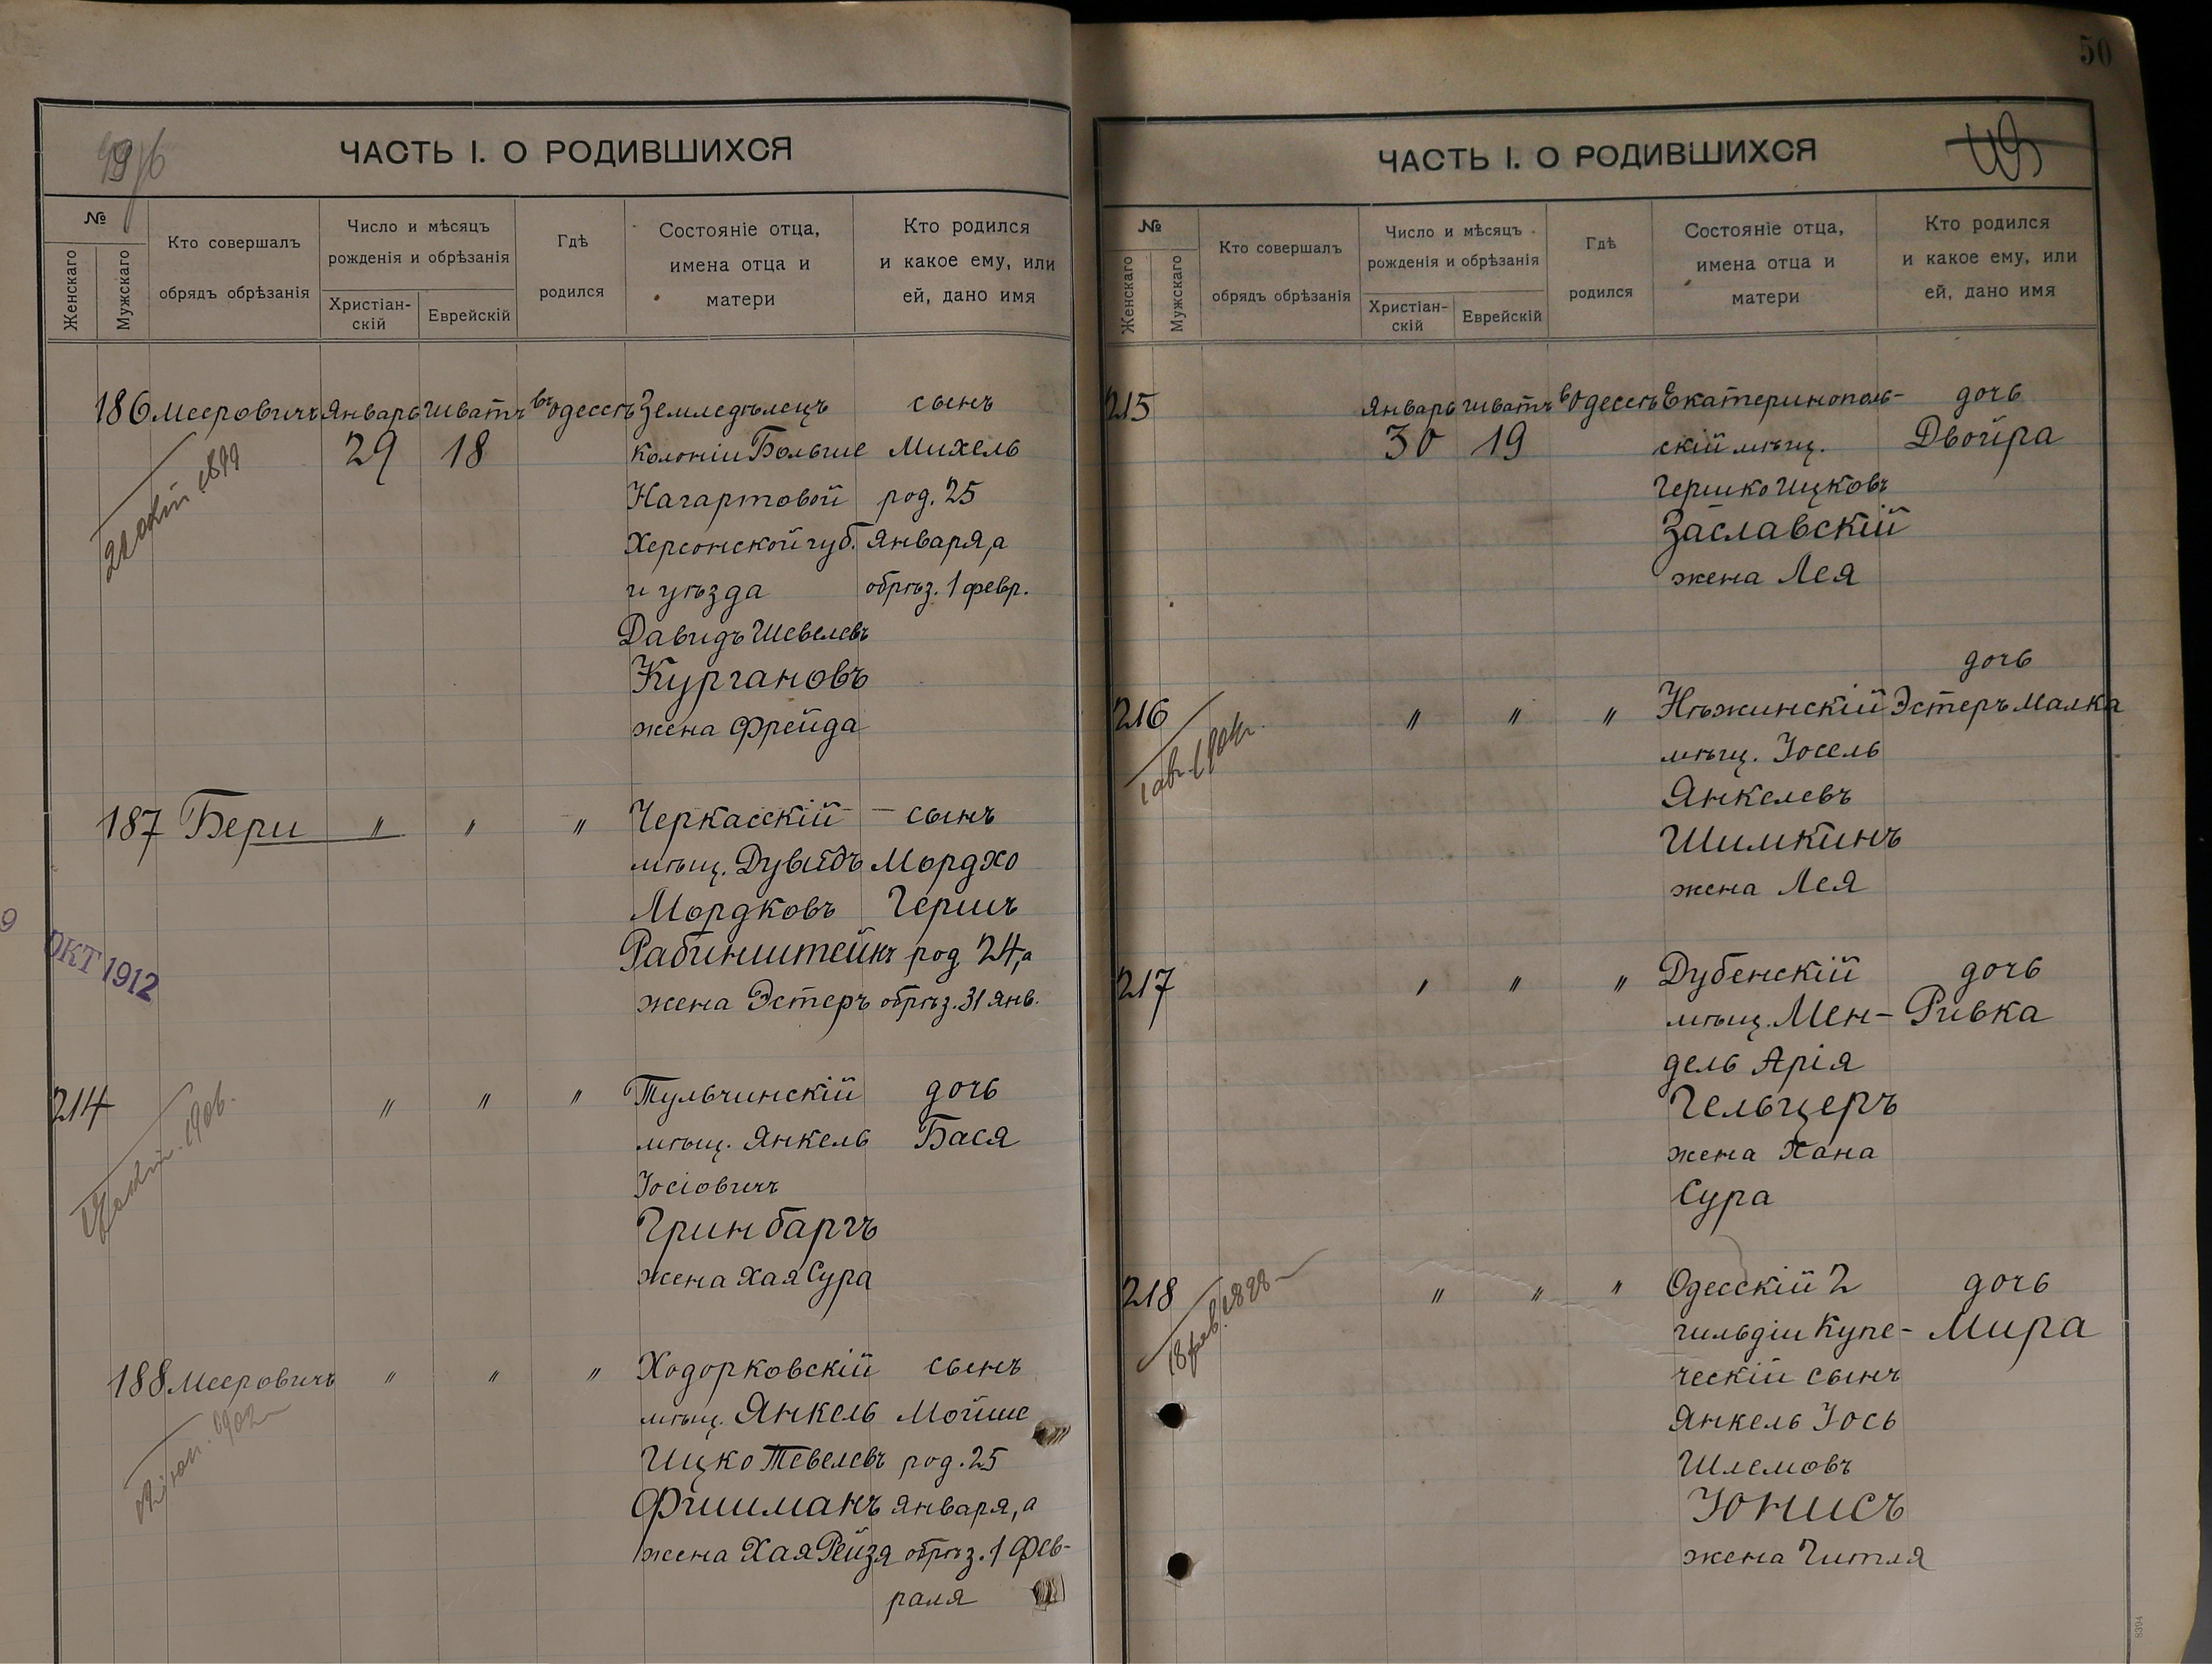 ЧАСТЬ I. О РОДИВШИХСЯ
№
Женскаго
Мужскаго
Кто совершалъ
обрядъ обрѣзанія
Число и мѣсяцъ
рожденія и обрѣзанія
Христіан-
скій
Еврейскій
Гдѣ
родился
Состояніе отца,
имена отца и
матери
Кто родился
и какое ему, или
ей, дано имя
186 Мееровичъ Январь Шватъ въ Одессѣ Земледѣлецъ сынъ
29 18 колоніи Больше Михель
Нагартовой род. 25
Херсонской губ. Января, а
и уѣзда обрѣз. 1 февр.
Давидъ Шевелевъ
Кургановъ
жена Фрейда
187 Бери " " " Черкасскій – сынъ
мѣщ. Дувидъ Мордхо
Мордковъ Гершъ
Рабинштейнъ род 24, а
жена Эстеръ обрѣз. 31 янв.
9 ОКТ 1912
214 " " " Тульчинскій дочь
мѣщ. Янкель Бася
Іосіовичъ
Гринбаргъ
жена Хая Сура
188 Мееровичъ " " " Ходорковскій сынъ
мѣщ. Янкель Мойше
Ицко Тевелевъ род. 25
Фишманъ января, а
жена Хая Рейзя обрѣз. 1 фев-
раля
50
ЧАСТЬ I. О РОДИВШИХСЯ
№
Женскаго
Мужскаго
Кто совершалъ
обрядъ обрѣзанія
Число и мѣсяцъ
рожденія и обрѣзанія
Христіан-
скій
Еврейскій
Гдѣ
родился
Состояніе отца,
имена отца и
матери
Кто родился
и какое ему, или
ей, дано имя
215 Январь Шватъ въ Одессѣ Екатеринополь- дочь
30 19 скій мѣщ. Двойра
Гершко Ицковъ
Заславскій
жена Лея
дочь
216 " " " Нѣжинскій Эстеръ Малка
мѣщ. Іосель
Янкелевъ
Шимкинъ
жена Лея
217 " " " Дубенскій дочь
мѣщ. Мен- Ривка
дель Арія
Гельцеръ
жена Хана
Сура
218 " " " Одесскій 2 дочь
гильдіи Купе- Мира
ческій сынъ
Янкель Іось
Шлемовъ
Юнисъ
жена Гитля
8394